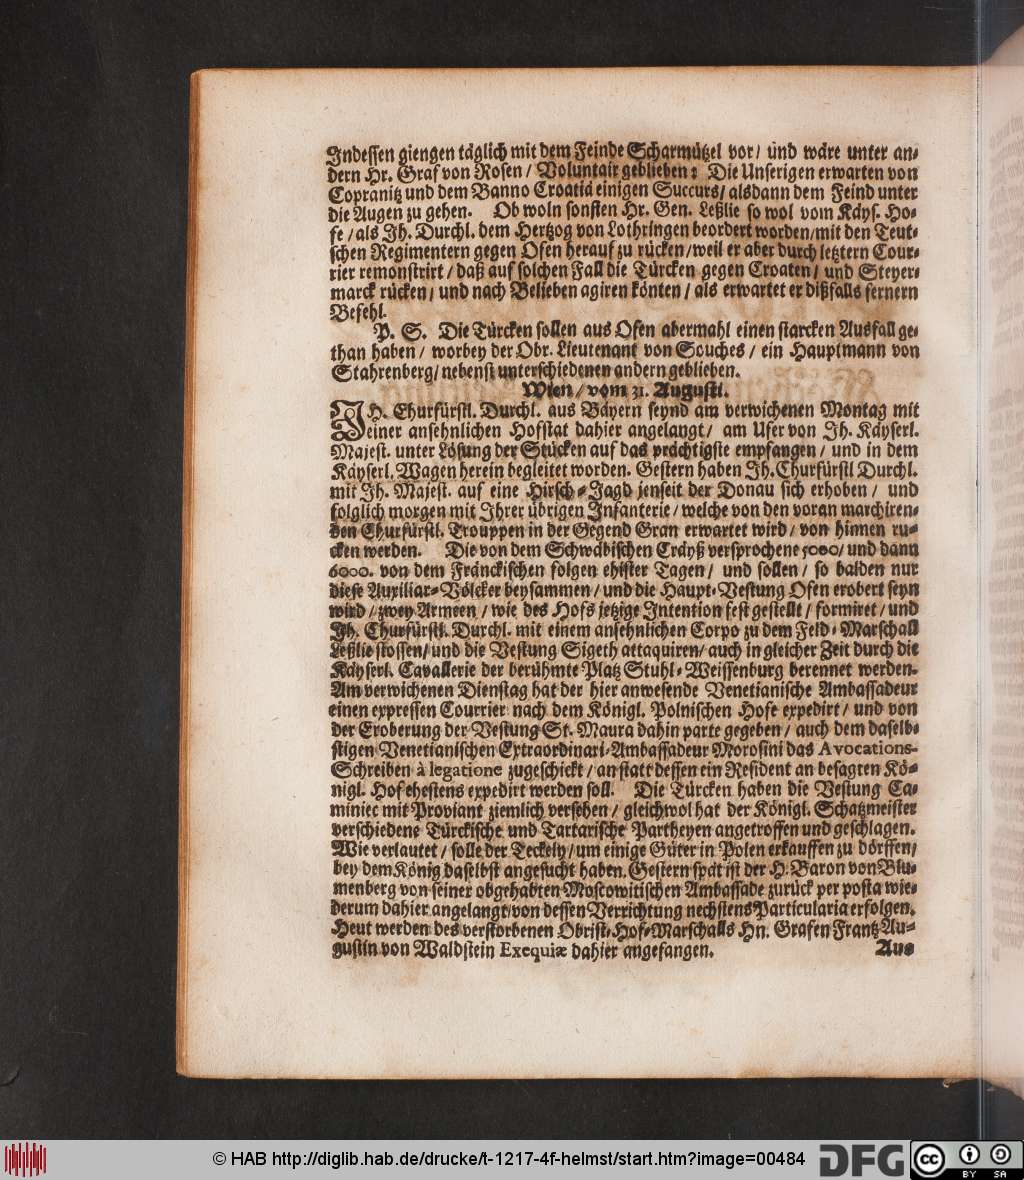 Indessen giengen täglich mit dem Feinde Scharmützel vor/ und wäre unter an-
dern Hr. Graf von Rosen/ Voluntair geblieben: Die Unserigen erwarten von
Copranitz und dem Banno Croatiä einigen Succurs/ alsdann dem Feind unter
die Augen zu gehen. Ob woln sonsten Hr. Gen. Leßlie so wol vom Käys. Ho-
fe/ als Ih. Durchl. dem Hertzog von Lothringen beordert worden/ mit den Teut-
schen Regimentern gegen Ofen herauf zu rücken/ weil er aber durch letztern Cour-
rier remonstrirt/ daß auf solchen Fall die Türcken gegen Croaten/ und Steyer-
marck rücken/ und nach Belieben agiren könten/ als erwartet er dißfalls fernern
Befehl.
P. S. Die Türcken sollen aus Ofen abermahl einen starcken Ausfall ge-
than haben/ worbey der Obr. Lieutenant von Souches/ ein Hauptmann von
Stahrenberg/ nebenst unterschiedenen andern geblieben.
Wien/ vom 31. Augusti.
IH. Churfürstl. Durchl. aus Bäyern seynd am verwichenen Montag mit
seiner ansehnlichen Hofstat dahier angelangt/ am Ufer von Ih. Käyserl.
Majest. unter Lösung der Stücken auf das prächtigste empfangen/ und in dem
Käyserl. Wagen herein begleitet worden. Gestern haben Ih. Churfürstl Durchl.
mit Ih. Majest. auf eine Hirsch-Jagd jenseit der Donau sich erhoben/ und
folglich morgen mit Ihrer übrigen Infanterie/ welche von den voran marchiren-
den Churfürstl. Trouppen in der Gegend Gran erwartet wird/ von hinnen ru-
cken werden. Die von dem Schwäbischen Cräyß versprochene 5000/ und dann
6000. von dem Fränckischen folgen ehister Tagen/ und sollen/ so balden nur
diese Auxiliar-Völcker beysammen/ und die Haupt-Vestung Ofen erobert seyn
wird/ zwey Armeen/ wie des Hofs jetzige Intention fest gestellt/ formiret/ und
Ih. Churfürstl. Durchl. mit einem ansehnlichen Corpo zu dem Feld-Marschall
Leßlie stossen/ und die Vestung Sigeth attaquiren/ auch in gleicher Zeit durch die
Käyserl. Cavallerie der berühmte Platz Stuhl-Weissenburg berennet werden.
Am verwichenen Dienstag hat der hier anwesende Venetianische Ambassadeur
einen expressen Courrier nach dem Königl. Polnischen Hofe expedirt/ und von
der Eroberung der Vestung St. Maura dahin parte gegeben/ auch dem daselb-
stigen Venetianischen Extraordinari-Ambassadeur Morosini das Avocations-
Schreiben à legatione zugeschickt/ an statt dessen ein Resident an besagten Kö-
nigl. Hof ehestens expedirt werden soll. Die Türcken haben die Vestung Ca-
miniec mit Proviant ziemlich versehen/ gleichwol hat der Königl. Schatzmeister
verschiedene Türckische und Tartarische Partheyen angetroffen und geschlagen.
Wie verlautet/ solle der Teckely/ um einige Güter in Polen erkauffen zu dörffen/
bey dem König daselbst angesucht haben. Gestern spät ist der H. Baron von Blu-
menberg von seiner obgehabten Moscowitischen Ambassade zurück per posta wie-
derum dahier angelangt/ von dessen Verrichtung nechstens Particularia erfolgen.
Heut werden des verstorbenen Obrist-Hof-Marschalls Hn. Grafen Frantz Au-
gustin von Waldstein Exequiæ dahier angefangen.
Aus
© HAB http://diglib.hab.de/drucke/t-1217-4f-helmst/start.htm?image=00484
DFG
cc BY SA